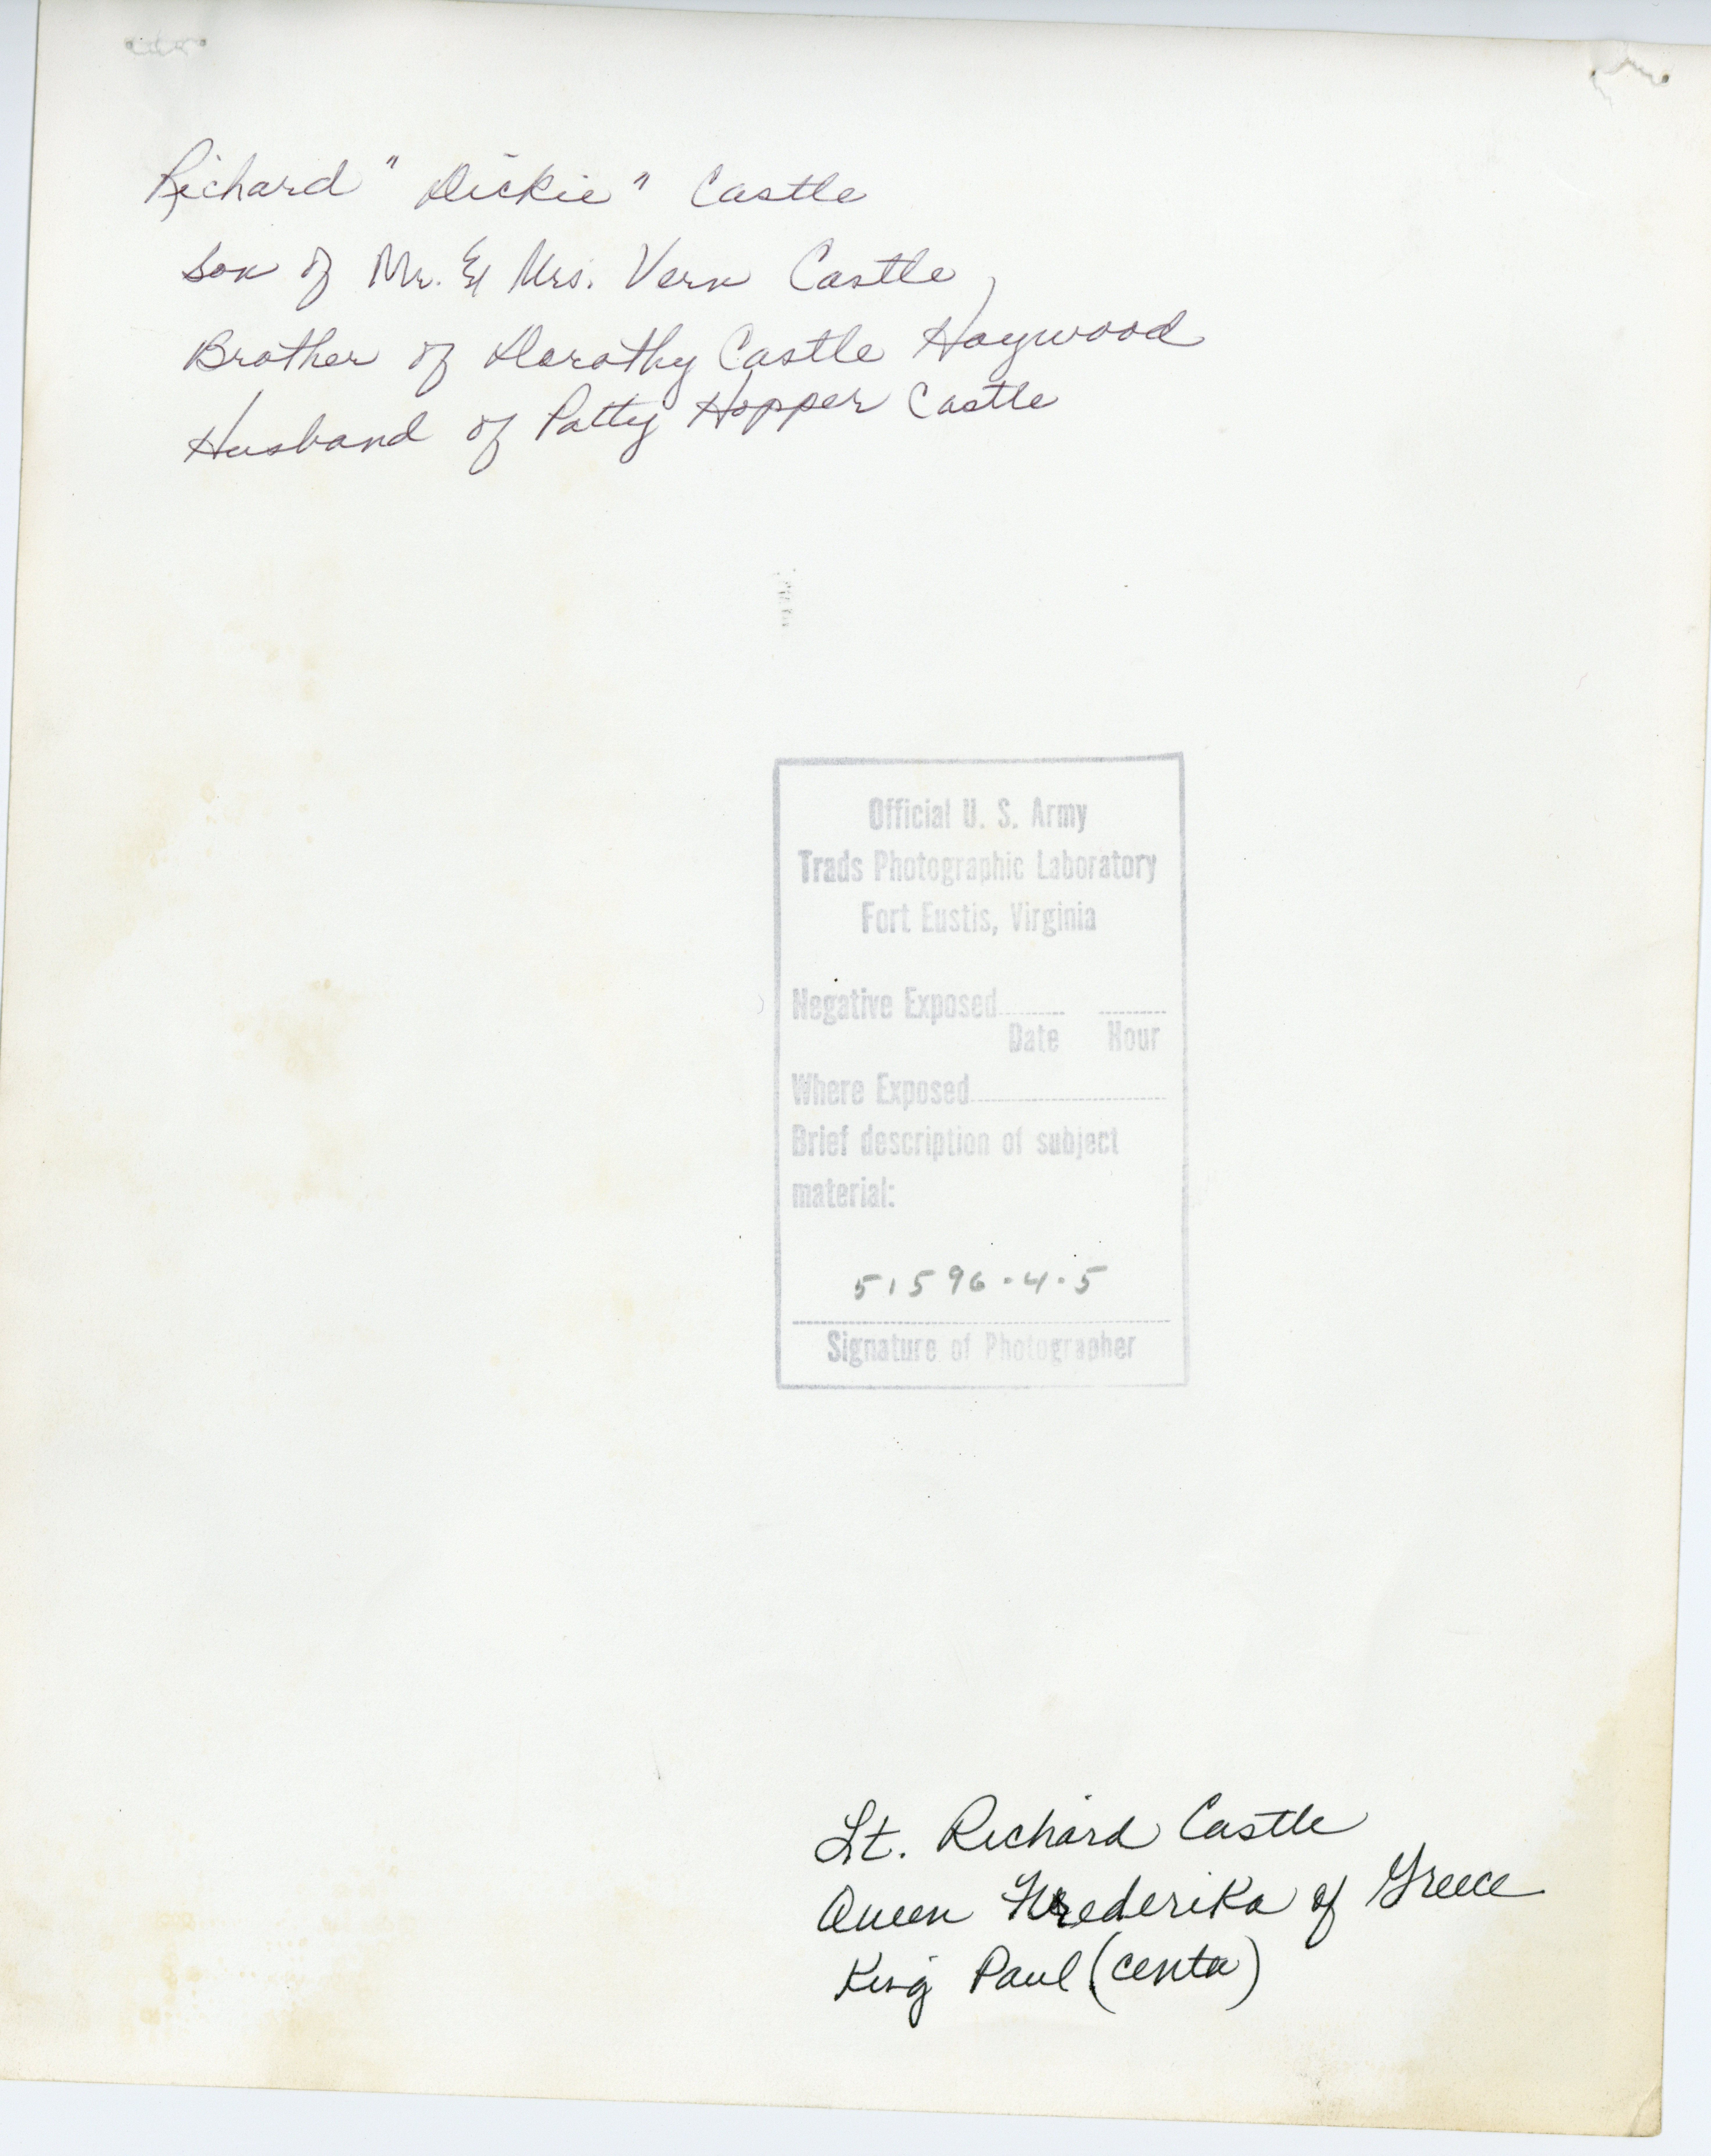 Richard "Dickie" Castle
Son of Mr. & Mrs. Vern Castle,
Brother of Dorothy Castle Haywood
Husband of Patty Hopper Castle
Official U. S. Army
Trads Photographic Laboratory
Fort Eustis, Virginia
Negative Exposed
Date Hour
Where Exposed
Brief description of subject
material:
51596-4-5
Signature of Photographer
Lt. Richard Castle
Queen Frederika of Greece
King Paul (center)